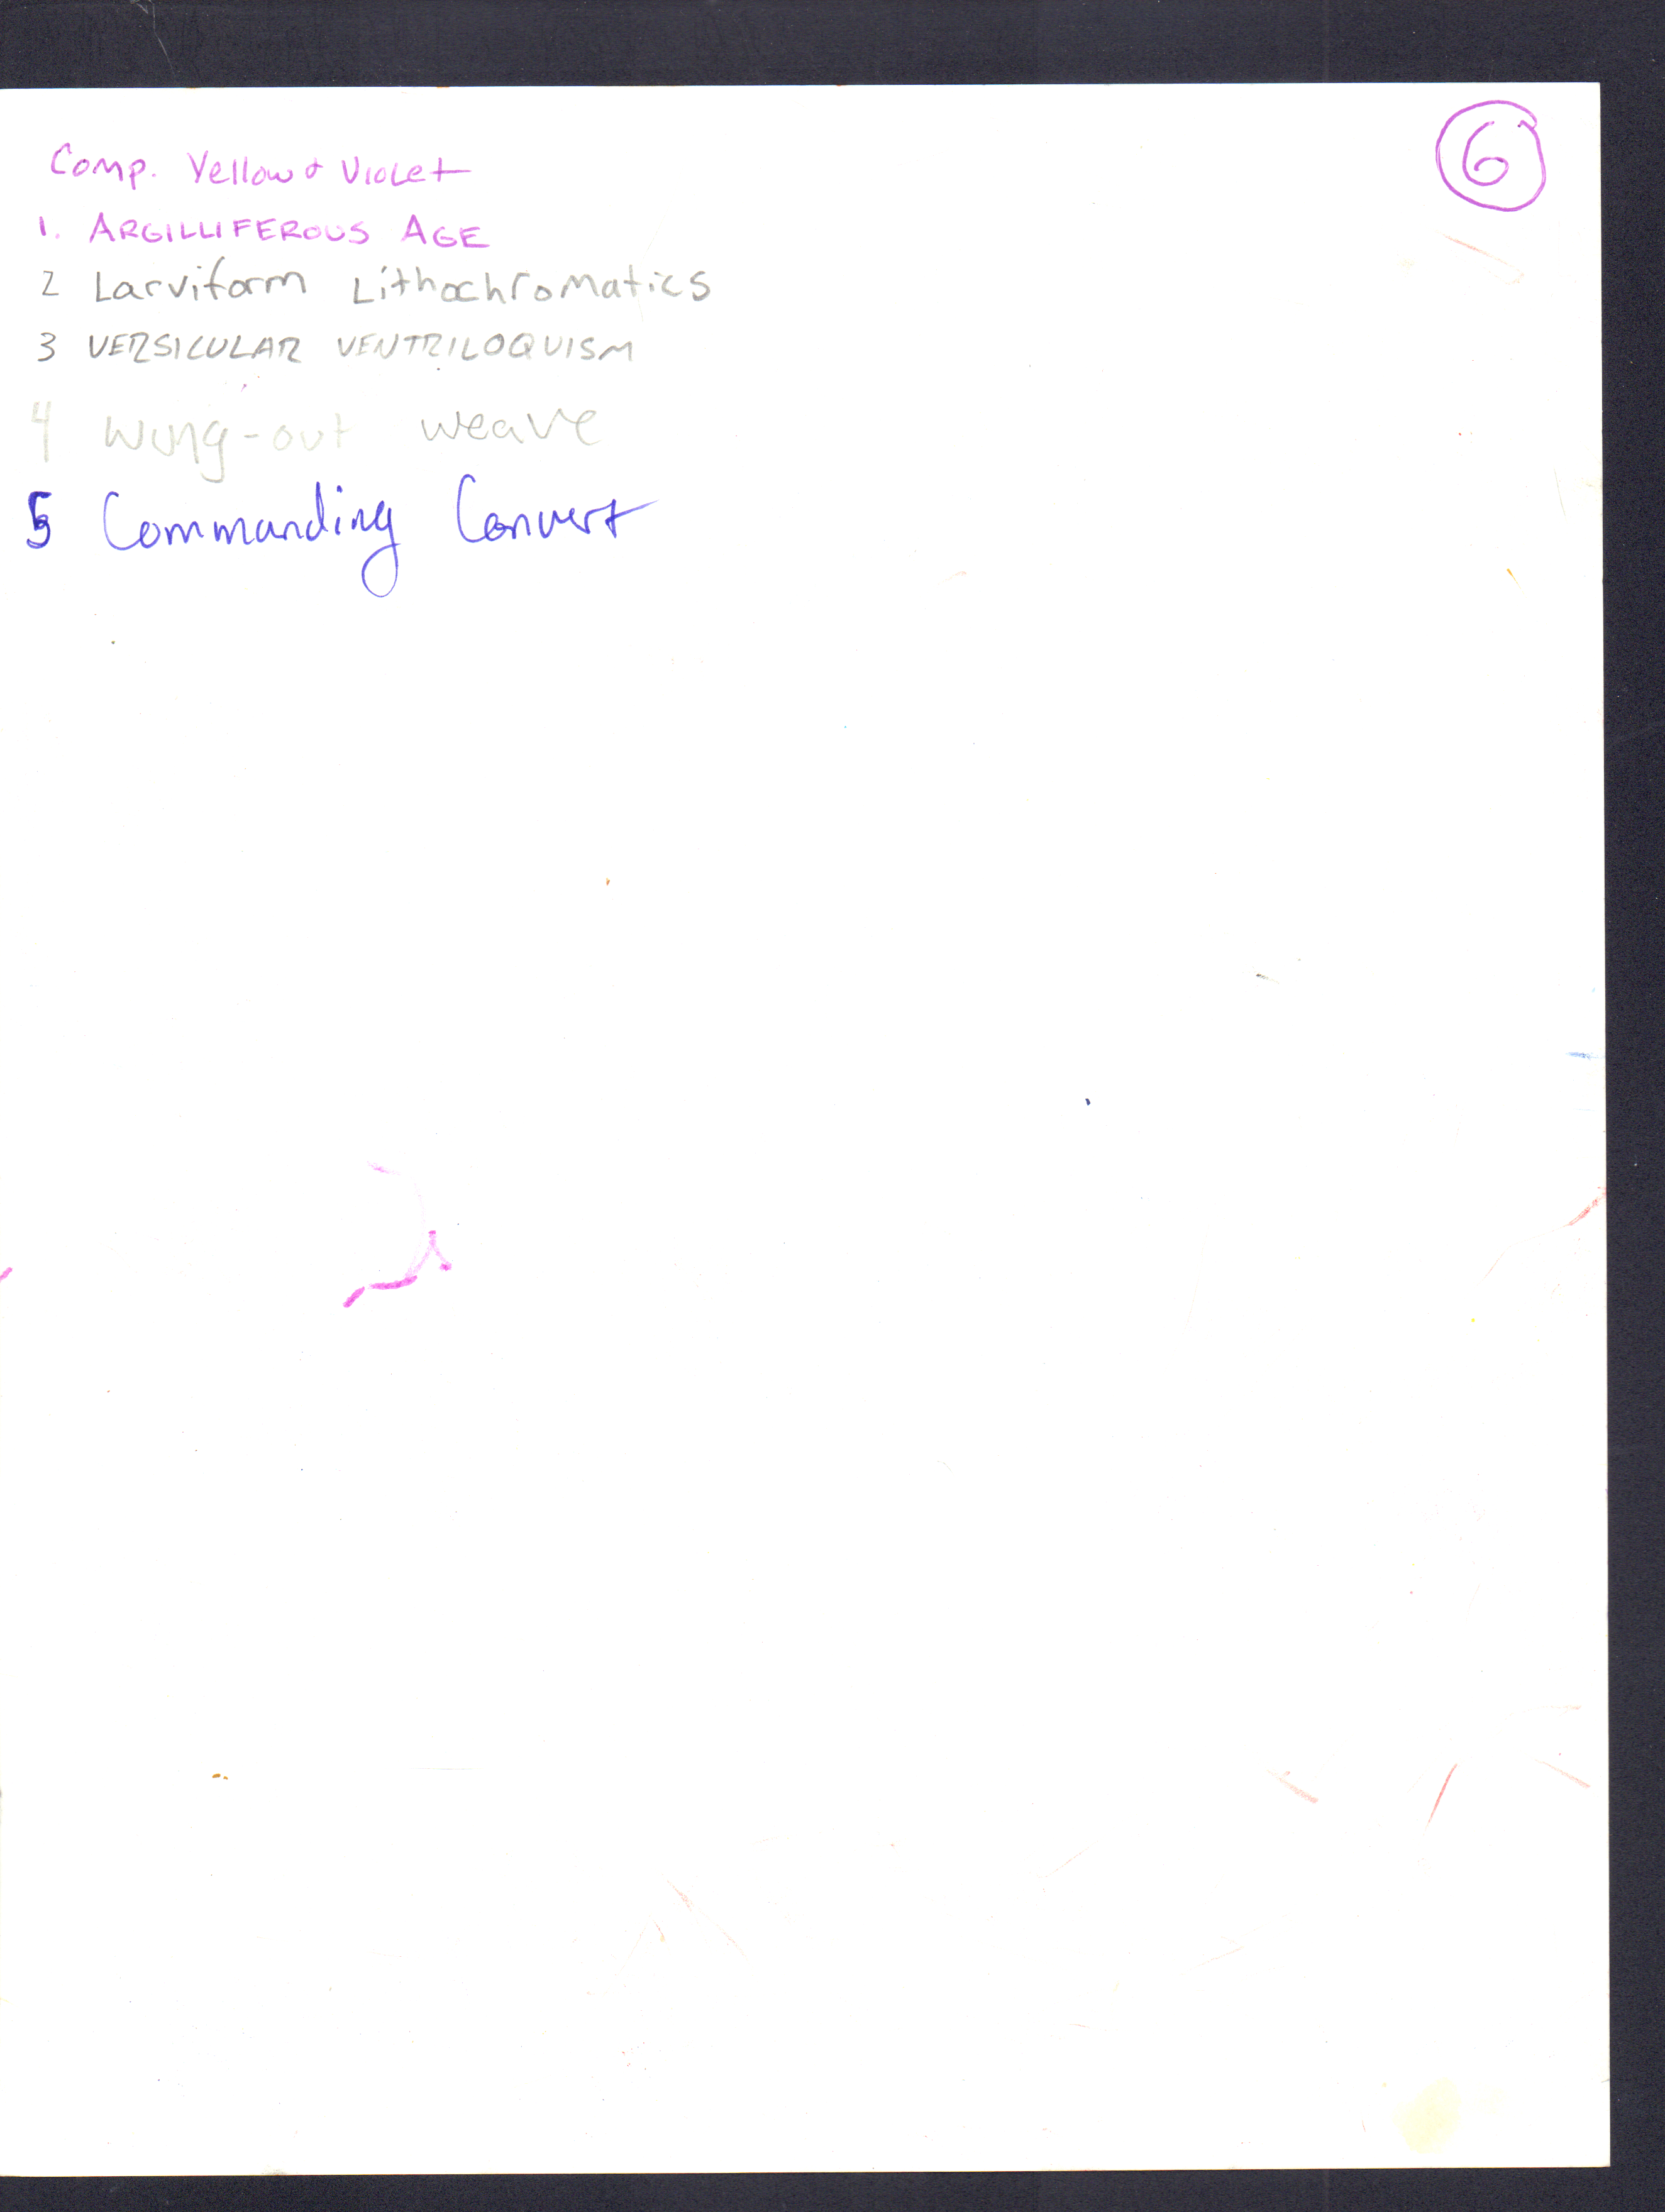 6
Comp. Yellow & Violet
1. ARGILLIFEROUS AGE
2 Larviform Lithochromatics
3 VERSICULAR VENTRILOQUISM
4 Wing-out weave
5 Commanding Convert